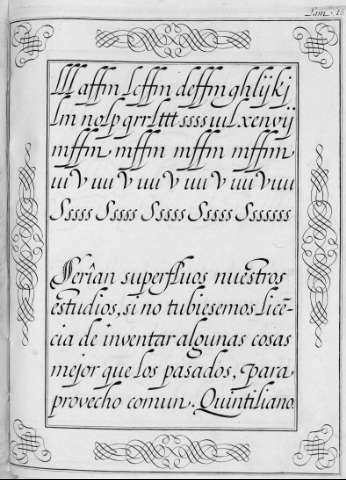 Lam. 1.
lll affm lcffm deffm ghlijkj
lm nolp qrrlttt ssss uulxenvij
mffm mffm mffm mffnm
uu V uu V uu V uu V uu V uu
Sssss Sssss Sssss Sssss Sssssss
Serîan superfluos nuestros
estudios, si no tubiesemos licē-
cia de inventar algunas cosas
mejor que los pasados, para
provecho comun. Quintiliano.